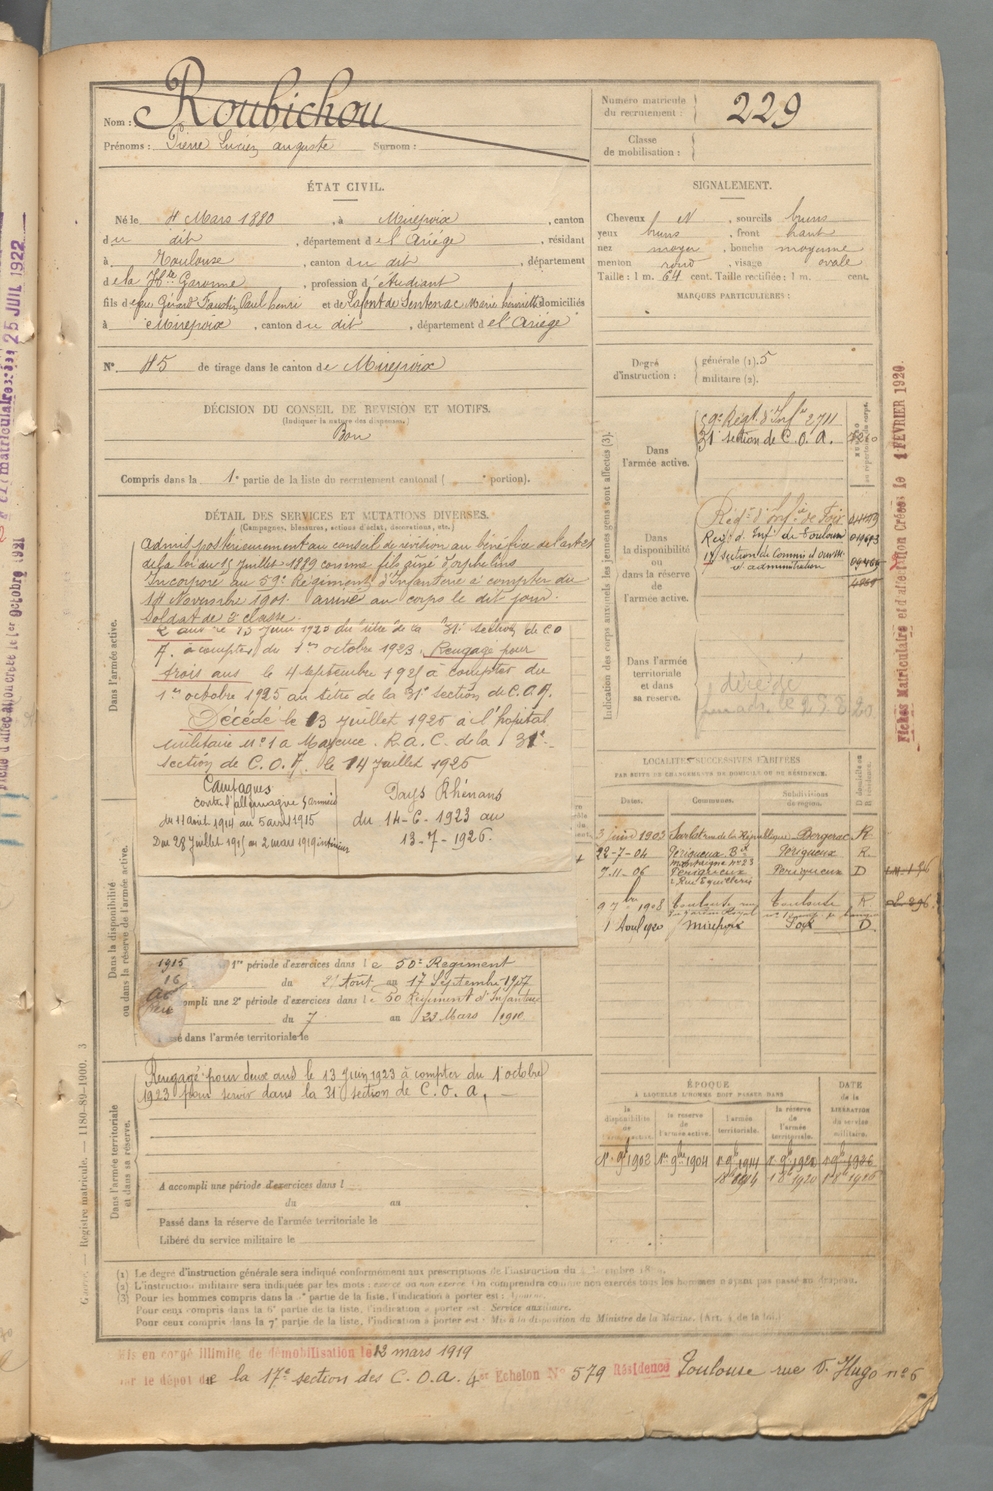 Nom : Roubichou
Prénoms : Pierre Lucien auguste Surnom :
Numéro matricule du recrutement : 229
Classe de mobilisation :
ÉTAT CIVIL.
Né le 4 Mars 1880, à Mirepoix, canton
du dit, département de l'Ariège, résidant
à Toulouse, canton du dit, département
de la Hte Garonne, profession d'Etudiant
fils de feu Gérard Faustin Paul henri et de Lafont de Sentenac Marie henriette domiciliés
à Mirepoix, canton du dit, département de l'Ariège
N° 45 de tirage dans le canton de Mirepoix
DÉCISION DU CONSEIL DE REVISION ET MOTIFS.
(Indiquer la nature des dispenses.)
Bon
Compris dans la 1e partie de la liste du recrutement cantonal ( portion).
SIGNALEMENT.
Cheveux N, sourcils bruns
yeux bruns, front haut
nez moyen, bouche moyenne
menton rond, visage ovale
Taille : 1 m. 64 cent. Taille rectifiée : 1 m. cent.
MARQUES PARTICULIÈRES :
Degré d'instruction : générale (1). 5
militaire (2).
DÉTAIL DES SERVICES ET MUTATIONS DIVERSES.
(Campagnes, blessures, actions d'éclat, décorations, etc.)
Dans l'armée active.
admis postérieurement au conseil de révision au bénéfice de l'art
de la loi du 15 Juillet 1889 comme fils ainé d'orphelins
Incorporé au 59e Régiment d'Infanterie à compter du
14 Novembre 1901. arrivé au corps le dit jour.
Soldat de 2e classe.
2 ans le 13 Juin 1923 du titre de la 31e section de C O
A. à compter du 1er octobre 1923. Rengagé pour
trois ans le 4 septembre 1925 à compter du
1er octobre 1925 au titre de la 31e section de C.O.A.
Décédé le 13 Juillet 1926 à l'hopital
militaire n° 1 a Mayence. R.a.C. de la 31e
section de C.O.A. le 14 Juillet 1926
Campagnes
contre l'allemagne
du 11 août 1914 au 5 avril 1915
Du 28 Juillet 1915 au 2 mars 1919 intérieur
Pays Rhénans
du 14-6-1923 au
13-7-1926.
Dans la disponibilité ou dans la réserve de l'armée active.
1re période d'exercices dans le 50e Régiment
du 21 Août au 17 Septembre 1907
accompli une 2e période d'exercices dans le 50 Régiment d'Infanterie
du 7 au 23 Mars 1910
Passé dans l'armée territoriale le
Dans l'armée territoriale et dans sa réserve.
Rengagé pour deux ans le 13 Juin 1923 à compter du 1er octobre
1923 pour servir dans la 31e section de C.O.A.
A accompli une période d'exercices dans l
du au
Passé dans la réserve de l'armée territoriale le
Libéré du service militaire le
Indication des corps auxquels les jeunes gens sont affectés (3).
Dans l'armée active.
59e Régt d'Infie 2711
31e section de C.O.A.
Dans la disponibilité ou dans la réserve de l'armée active.
Régt d'Infie de Foix
Régt d'Inf. de Toulouse
17e section de Commis et ouvr.
d'administration
Dans l'armée territoriale et dans sa réserve.
décédé
LOCALITÉS SUCCESSIVES HABITÉES
PAR SUITE DE CHANGEMENTS DE DOMICILE OU DE RÉSIDENCE.
Dates. Communes. Subdivisions de région.
D domicile ou R résidence.
3 Juin 1903 Sarlat rue de la République Bergerac R.
22-7-04 Périgueux Périgueux R.
7.11-06 Périgueux Périgueux D
1908 Toulouse Toulouse R
1 Avril 1920 Mirepoix Foix D.
ÉPOQUE
À LAQUELLE L'HOMME DOIT PASSER DANS
la disponibilité de l'armée active. la réserve de l'armée active. l'armée territoriale. la réserve de l'armée territoriale.
DATE de la LIBÉRATION du service militaire.
1r 9b 1902 1er 9bre 1904 1r 9b 1914 1r 9b 1920 1r 9b 1926
(1) Le degré d'instruction générale sera indiqué conformément aux prescriptions de l'instruction du
(2) L'instruction militaire sera indiquée par les mots : exercé ou non exercé. On comprendra comme non exercés tous les hommes n'ayant pas passé au drapeau.
(3) Pour les hommes compris dans la 1re partie de la liste, l'indication à porter est :
Pour ceux compris dans la 6e partie de la liste, l'indication à porter est : Service auxiliaire.
Pour ceux compris dans la 7e partie de la liste, l'indication à porter est : Mis à la disposition du Ministre de la Marine. (Art. 4 de la loi.)
Mis en congé illimité de démobilisation le 12 mars 1919
par le dépôt de la 17e section des C.O.A. 4e Echelon N° 579 Résidence Toulouse rue V. Hugo n° 6
Registre matricule. — 1180-89-1900. 3
Fiches Matriculaire et d'affectation Créées le 1 FÉVRIER 1920.
25 JUIL 1922
1er Octobre 1921